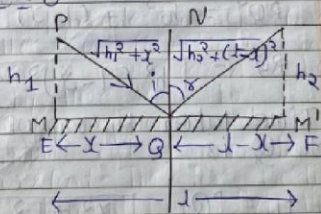 P N
√h₁²+x² √h₂²+(l-x)²
h₁ i r h₂
M M'
E x Q l-x F
l